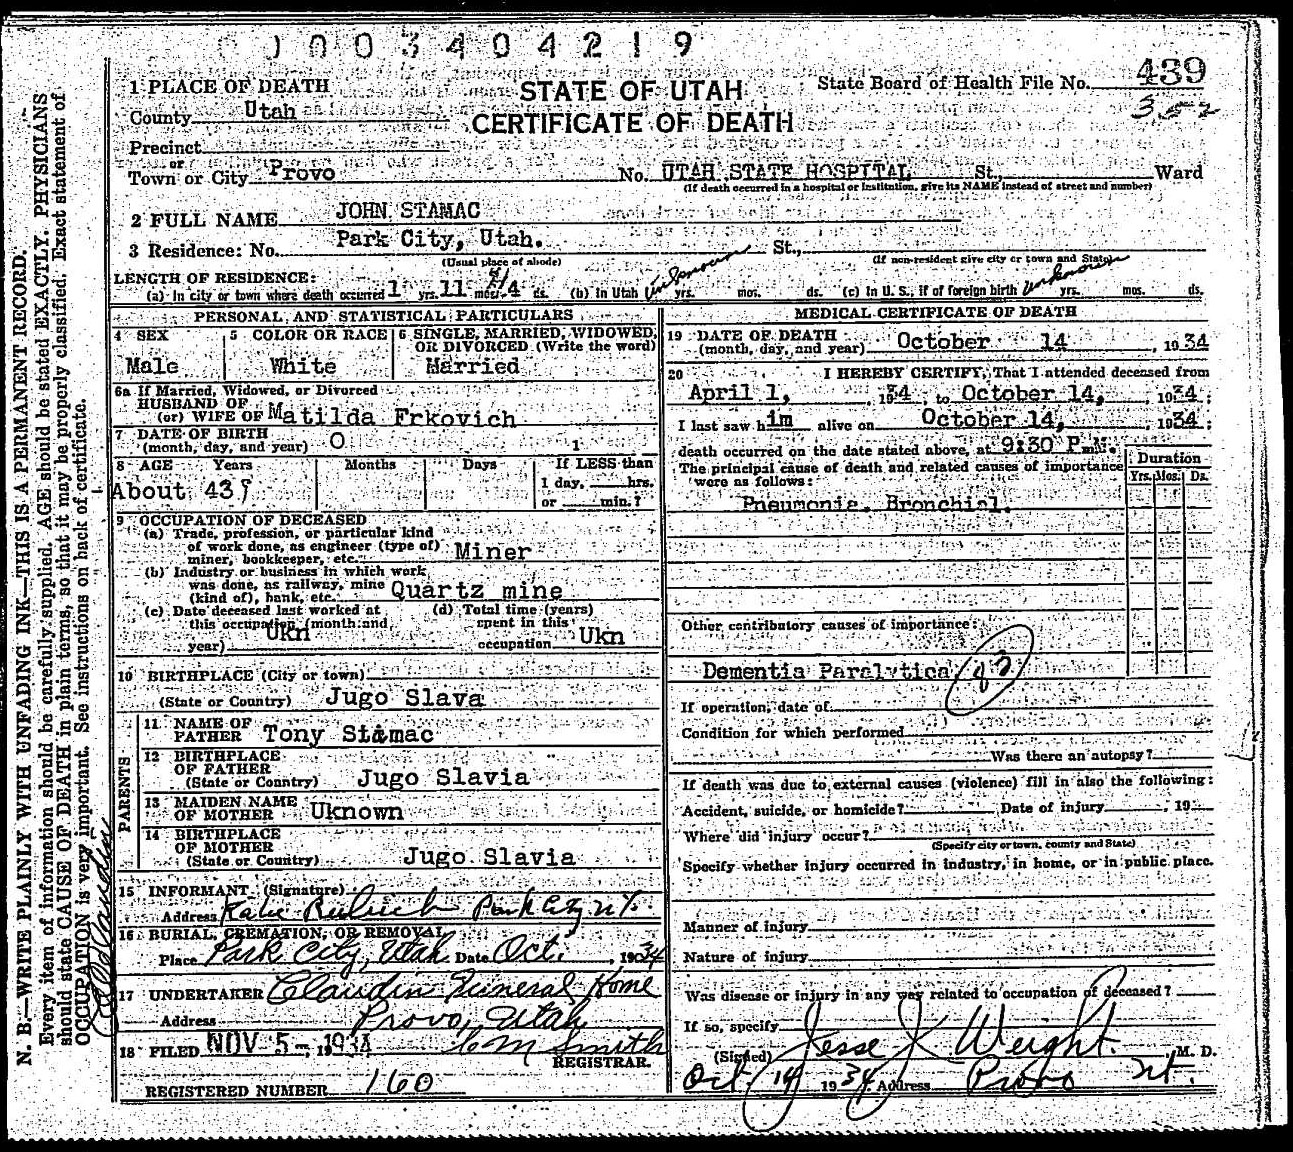 0003404219
STATE OF UTAH
CERTIFICATE OF DEATH
State Board of Health File No. 439
352
1 PLACE OF DEATH
County Utah
Precinct
or
Town or City Provo No. UTAH STATE HOSPITAL St., Ward
(If death occurred in a hospital or institution, give its NAME instead of street and number)
2 FULL NAME JOHN STAMAC
3 Residence: No. Park City, Utah. St.,
(Usual place of abode) (If non-resident give city or town and State)
LENGTH OF RESIDENCE:
(a) In city or town where death occurred 1 yrs. 11 mos. 4 ds. (b) In Utah Unknown yrs. mos. ds. (c) In U. S., if of foreign birth Unknown yrs. mos. ds.
PERSONAL AND STATISTICAL PARTICULARS
4 SEX 5 COLOR OR RACE 6 SINGLE, MARRIED, WIDOWED, OR DIVORCED (Write the word)
Male White Married
6a If Married, Widowed, or Divorced
HUSBAND OF
(or) WIFE OF Matilda Frkovich
7 DATE OF BIRTH
(month, day, and year) O 1
8 AGE Years Months Days If LESS than
1 day, hrs.
or min.?
About 43
9 OCCUPATION OF DECEASED
(a) Trade, profession, or particular kind
of work done, as engineer (type of)
miner, bookkeeper, etc. Miner
(b) Industry or business in which work
was done, as railway, mine
(kind of), bank, etc. Quartz mine
(c) Date deceased last worked at
this occupation (month and
year) Ukn
(d) Total time (years)
spent in this
occupation Ukn
10 BIRTHPLACE (City or town)
(State or Country) Jugo Slava
PARENTS
11 NAME OF
FATHER Tony Stamac
12 BIRTHPLACE
OF FATHER
(State or Country) Jugo Slavia
13 MAIDEN NAME
OF MOTHER Uknown
14 BIRTHPLACE
OF MOTHER
(State or Country) Jugo Slavia
15 INFORMANT (Signature)
Address Park City
16 BURIAL, CREMATION, OR REMOVAL
Place Park City, Utah Date Oct. , 1934
17 UNDERTAKER Claudin Funeral Home
Address Provo, Utah
18 FILED NOV 5-, 1934 Smith
REGISTRAR.
REGISTERED NUMBER 160
MEDICAL CERTIFICATE OF DEATH
19 DATE OF DEATH
(month, day, and year) October 14 , 1934
20 I HEREBY CERTIFY, That I attended deceased from
April 1, , 1934, to October 14, , 1934;
I last saw him alive on October 14, , 1934;
death occurred on the date stated above, at 9:30 P.M.
The principal cause of death and related causes of importance
were as follows:
Duration
Yrs. Mos. Ds.
Pneumonia, Bronchial.
Other contributory causes of importance:
Dementia Paralytica 83
If operation, date of
Condition for which performed
Was there an autopsy?
If death was due to external causes (violence) fill in also the following:
Accident, suicide, or homicide? Date of injury , 19
Where did injury occur?
(Specify city or town, county and State)
Specify whether injury occurred in industry, in home, or in public place.
Manner of injury
Nature of injury
Was disease or injury in any way related to occupation of deceased?
If so, specify
(Signed) Jesse J Weight. , M. D.
Oct. 14 1934 Address Provo Ut.
N. B.—WRITE PLAINLY WITH UNFADING INK—THIS IS A PERMANENT RECORD.
Every item of information should be carefully supplied. AGE should be stated EXACTLY. PHYSICIANS
should state CAUSE OF DEATH in plain terms, so that it may be properly classified. Exact statement of
OCCUPATION is very important. See instructions on back of certificate.